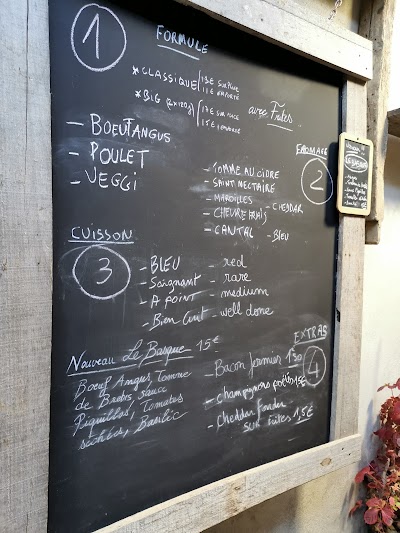 1
FORMULE
* CLASSIQUE
13€ SUR PLACE
11€ EMPORTÉ
* BIG (2x120g)
17€ SUR PLACE
15€ EMPORTÉ
avec Frites
- BOEUF ANGUS
- POULET
- VEGGI
FROMAGE
2
- TOMME AU CIDRE
- SAINT NECTAIRE
- MAROILLES
- CHEDDAR
- CHEVRE FRAIS
- CANTAL
- BLEU
CUISSON
3
- BLEU - red
- Saignant - rare
- A POINT - medium
- Bien Cuit - well done
Nouveau Le Basque - 15€
Boeuf Angus, tomme
de Brebis, sauce
Piquillos, Tomates
séchées, Basilic
EXTRAS
4
- Bacon fermier 1.50
- champignons poêlés 1.5€
- Cheddar Fondu
SUR FRITES 1,5€